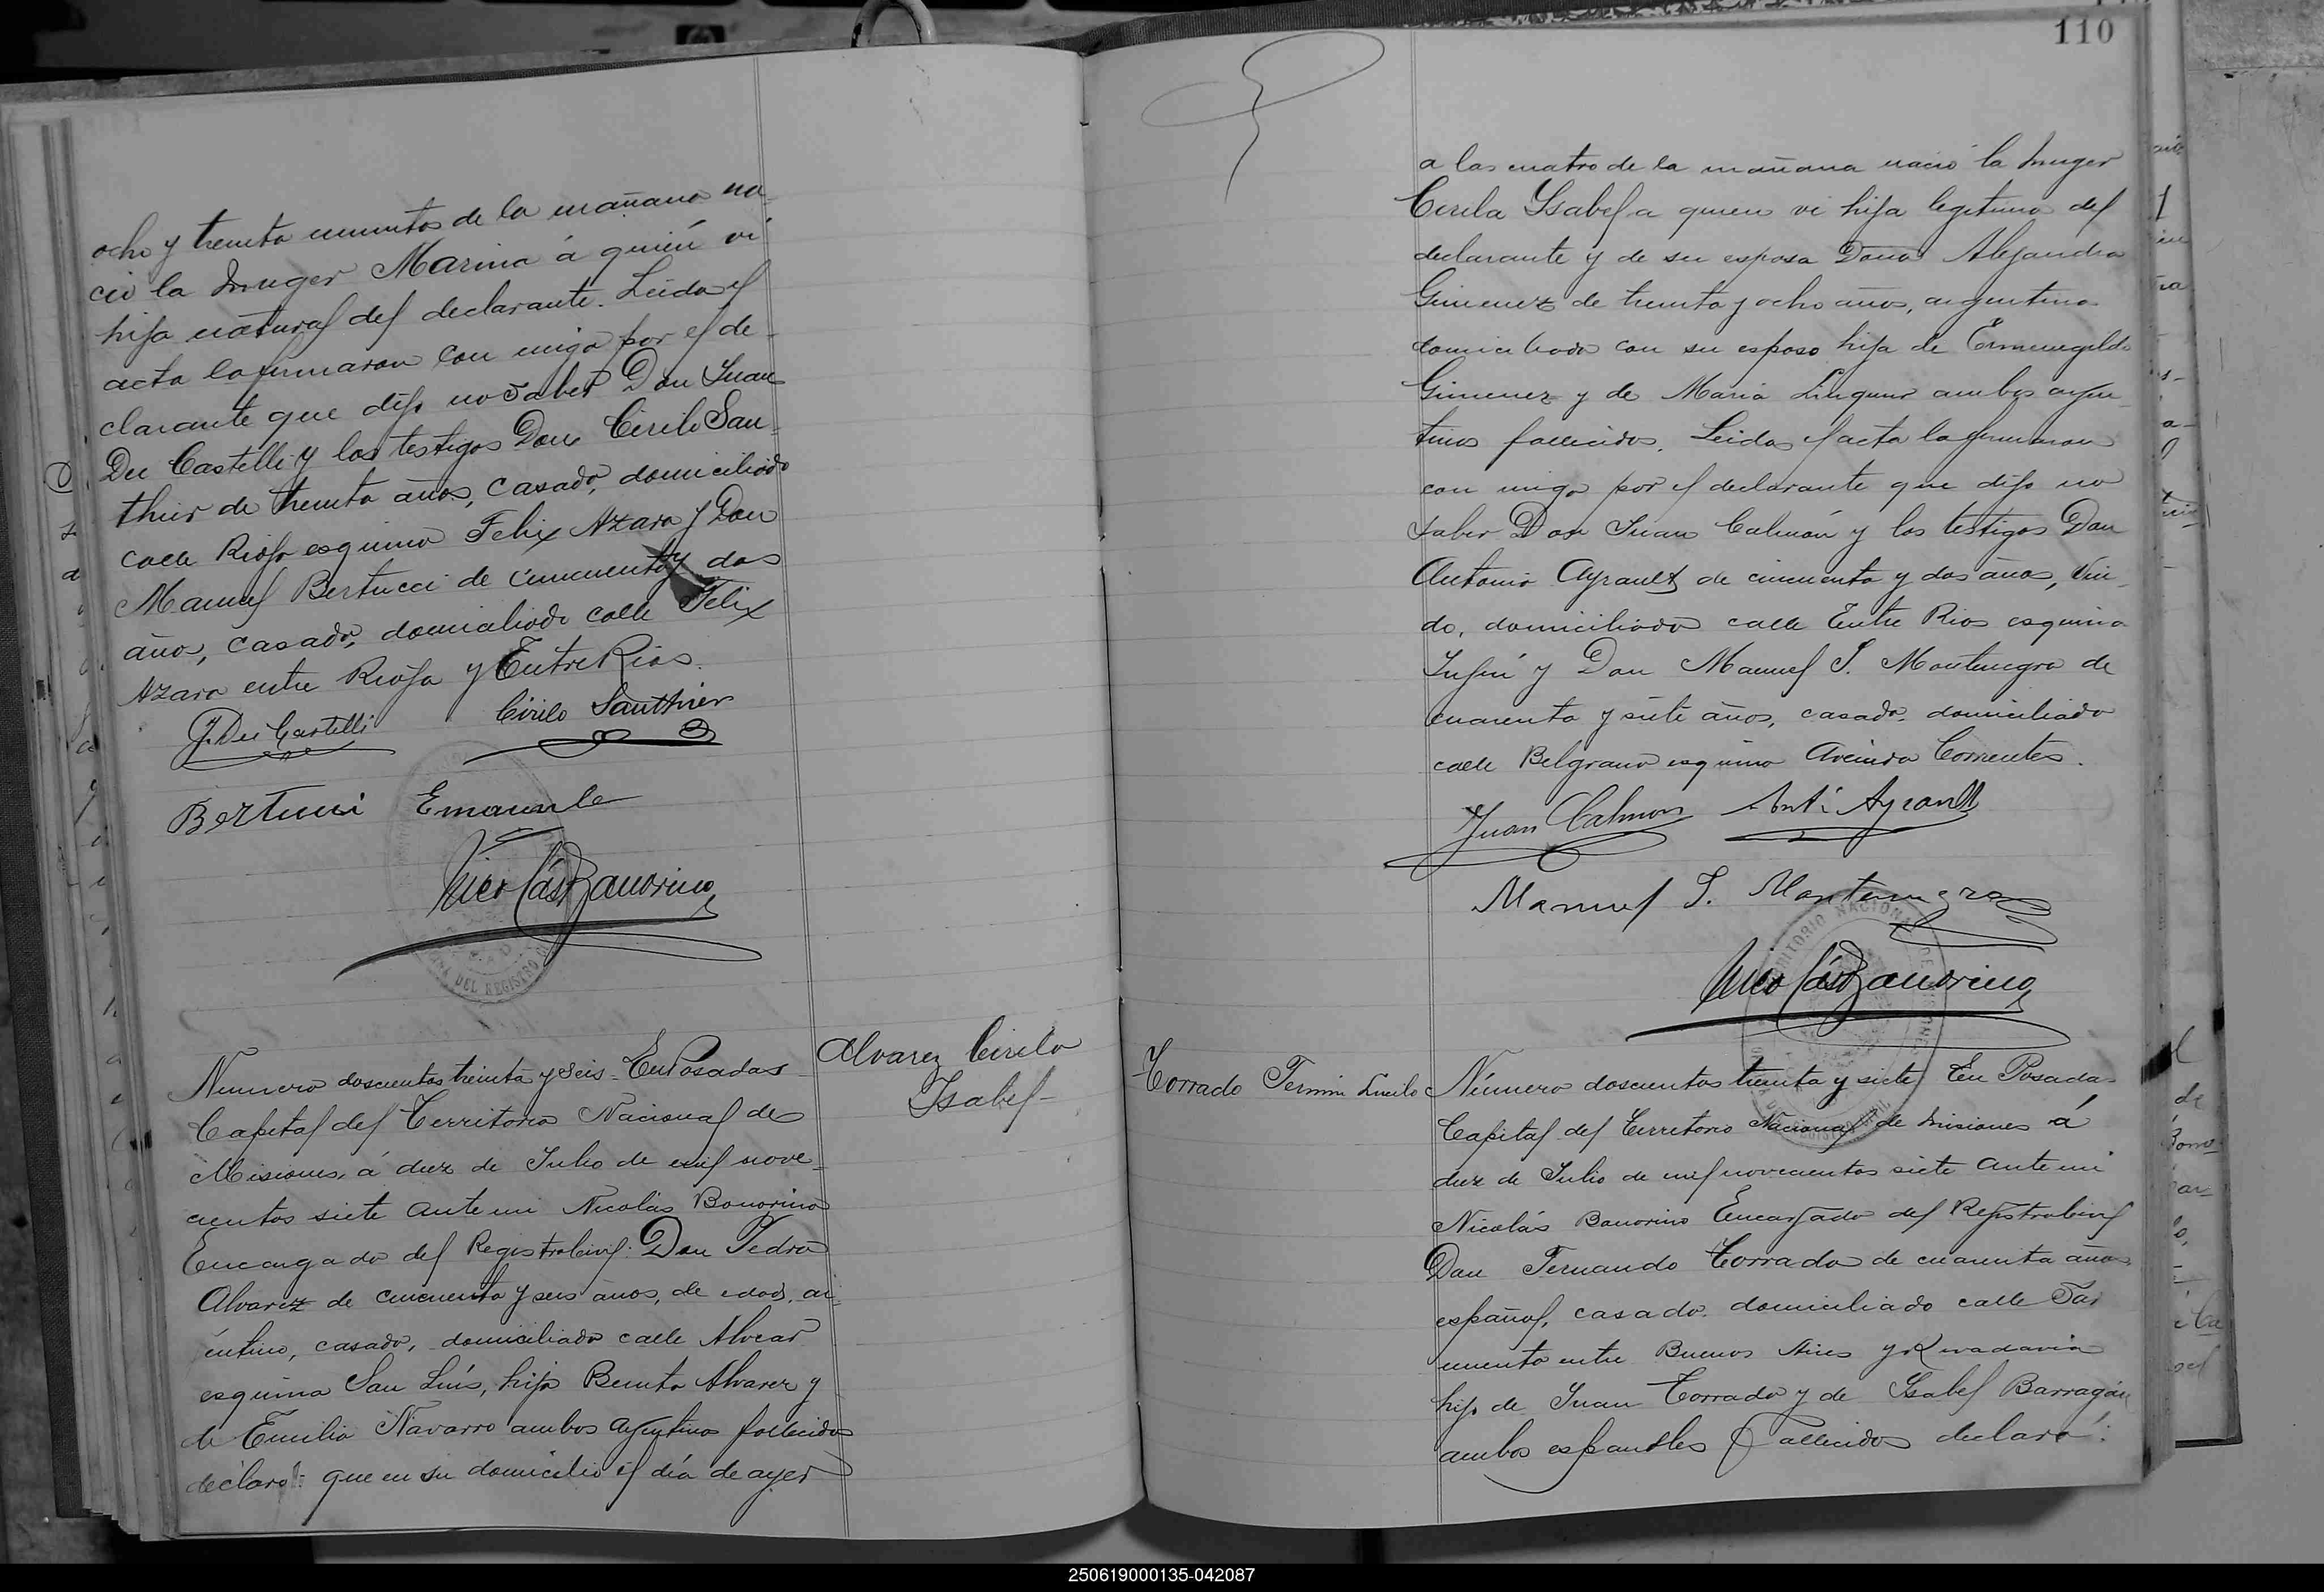 ocho y treinta minutos de la mañana na-
ció la muger Marina á quién vi
hija natural del declarante. Leida el
acta la firmaron con migo por el de-
clarante que dijo no saber Don Juan
Dei Castelli y los testigos Don Cirilo San-
thier de treinta años, casado, domiciliado
calle Rioja esquina Felix Azara y Don
Manuel Bertucci de cincuenta y dos
años, casado, domiciliado calle Felix
Azara entre Rioja y Entre Rios.
J. Dei Castelli Cirilo Santhier
Bertucci Emanuele
Nicolás Bonorino
DEL REGISTRO
Número doscientos treinta y seis. En Posadas
Capital del Territorio Nacional de
Misiones, á diez de Julio de mil nove-
cientos siete ante mi Nicolás Bonorino
Encargado del Registro Civil: Don Pedro
Alvarez de cincuenta y seis años, de edad, ar-
entino, casado, domiciliado calle Alvear
esquina San Luís, hijo Benito Alvarez y
de Emilia Navarro ambos argentinos fallecidos
declaró: que en su domicilio el día de ayer
Alvarez Cirila
Isabel-
110
a las cuatro de la mañana nació la muger
Cirila Ysabel a quien vi hija legitima del
declarante y de su esposa Dona Alejandra
Gimenez de treinta y ocho años, argentina
domiciliada con su esposo hija de Ermenegildo
Gimenez y de Maria ambos argen-
tinos fallecidos. Leida el acta la firmaron
con migo por el declarante que dijo no
saber Don Juan Calmón y los testigos Don
Antonio Ayrault de cincuenta y dos años, viu-
do, domiciliado calle Entre Rios esquina
Junín y Don Manuel S. Montenegro de
cuarenta y siete años, casado, domiciliado
calle Belgrano esquina Avenida Corrientes.
Juan Calmon Anto Ayrault
Manuel S. Montenegro
Nicolás Bonorino
TERRITORIO NACIONAL DE MISIONES
Torrado Fermin Lucilo
Número doscientos treinta y siete En Posadas
Capital del Territorio Nacional de Misiones á
diez de Julio de mil novecientos siete ante mi
Nicolás Bonorino Encargado del Registro Civil
Don Fernando Torrado de cuarenta años
español, casado, domiciliado calle Sar
miento entre Buenos Aires y Rivadavia
hijo de Juan Torrado y de Ysabel Barragán
ambos españoles fallecidos declaró:
250619000135-042087